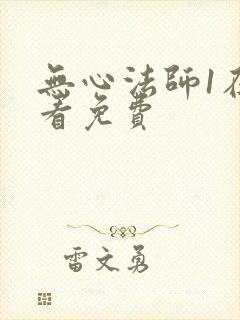 無心法師1在
看免費
雷文勇